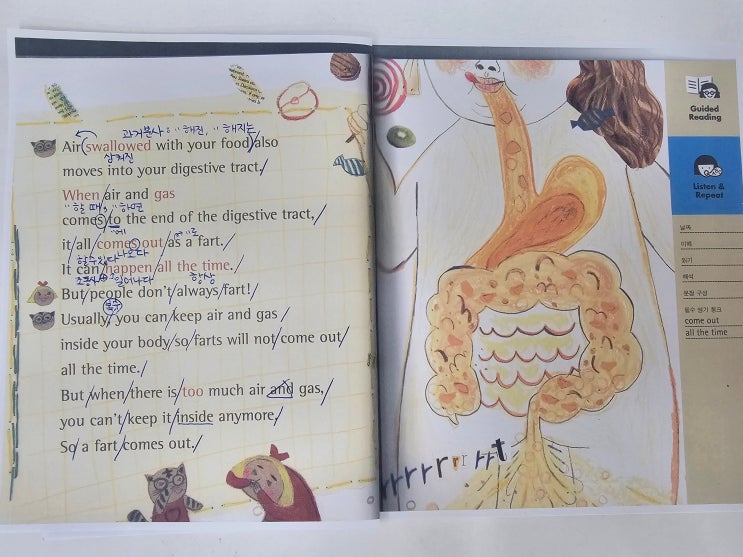 과거분사 : "해진, "해지는
Air swallowed with your food also
삼켜진
moves into your digestive tract.
When air and gas
"할 때, "하면
comes to the end of the digestive tract,
"에
it all comes out as a fart.
할수있다 나오다
It can happen all the time.
조동사 일어나다 항상
But people don't always fart!
Usually, you can keep air and gas
inside your body so farts will not come out
all the time.
But when there is too much air and gas,
you can't keep it inside anymore.
So a fart comes out.
rrrrrrr rrt
Guided
Reading
Listen &
Repeat
날짜
어휘
읽기
해석
문장 구성
필수 암기 청크
come out
all the time